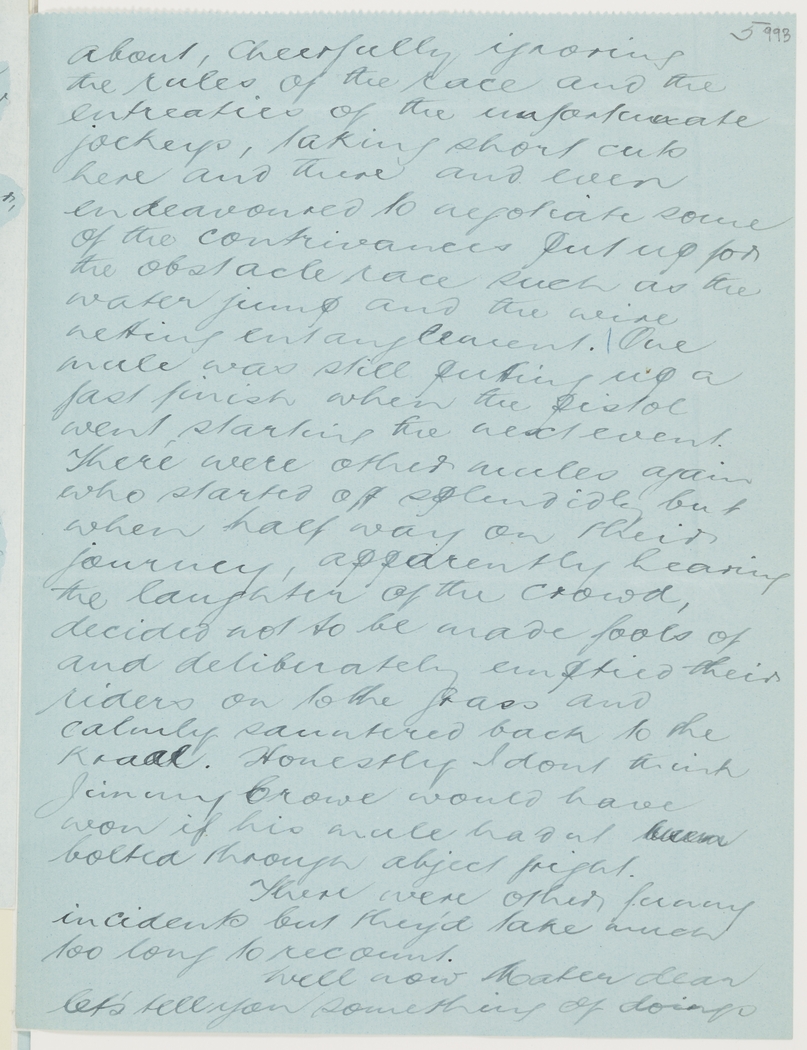 5 993
about, cheerfully ignoring
the rules of the race and the
entreaties of the unfortunate
jockeys, taking short cuts
here and there and even
endeavoured to negotiate some
of the contrivances put up for
the obstacle race such as the
water jump and the wire
netting entanglement. | One
mule was still putting up a
fast finish when the pistol
went, starting the next event.
There were other mules again
who started off splendidly but
when half way on their
journey, apparently hearing
the laughter of the crowd,
decided not to be made fools of
and deliberately emptied their
riders on to the grass and
calmly sauntered back to the
Kraal. Honestly I dont think
Jimmy Crowe would have
won if his mule hadnt
bolted through abject fright.
There were other funny
incidents but they'd take much
too long to recount.
Well now Mater dear
let's tell you something of doings